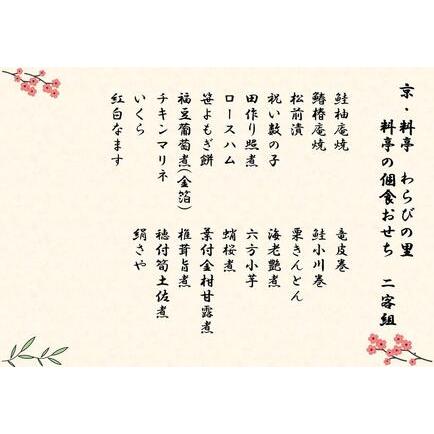 京・料亭 わらびの里
料亭の個食おせち 二客組
鮭柚庵焼
鰆椿庵焼
松前漬
祝い数の子
田作り照煮
ロースハム
笹よもぎ餅
福豆葡萄煮(金箔)
チキンマリネ
いくら
紅白なます
竜皮巻
鮭小川巻
栗きんとん
海老艶煮
六方小芋
蛸桜煮
葉付金柑甘露煮
椎茸旨煮
穂付筍土佐煮
絹さや